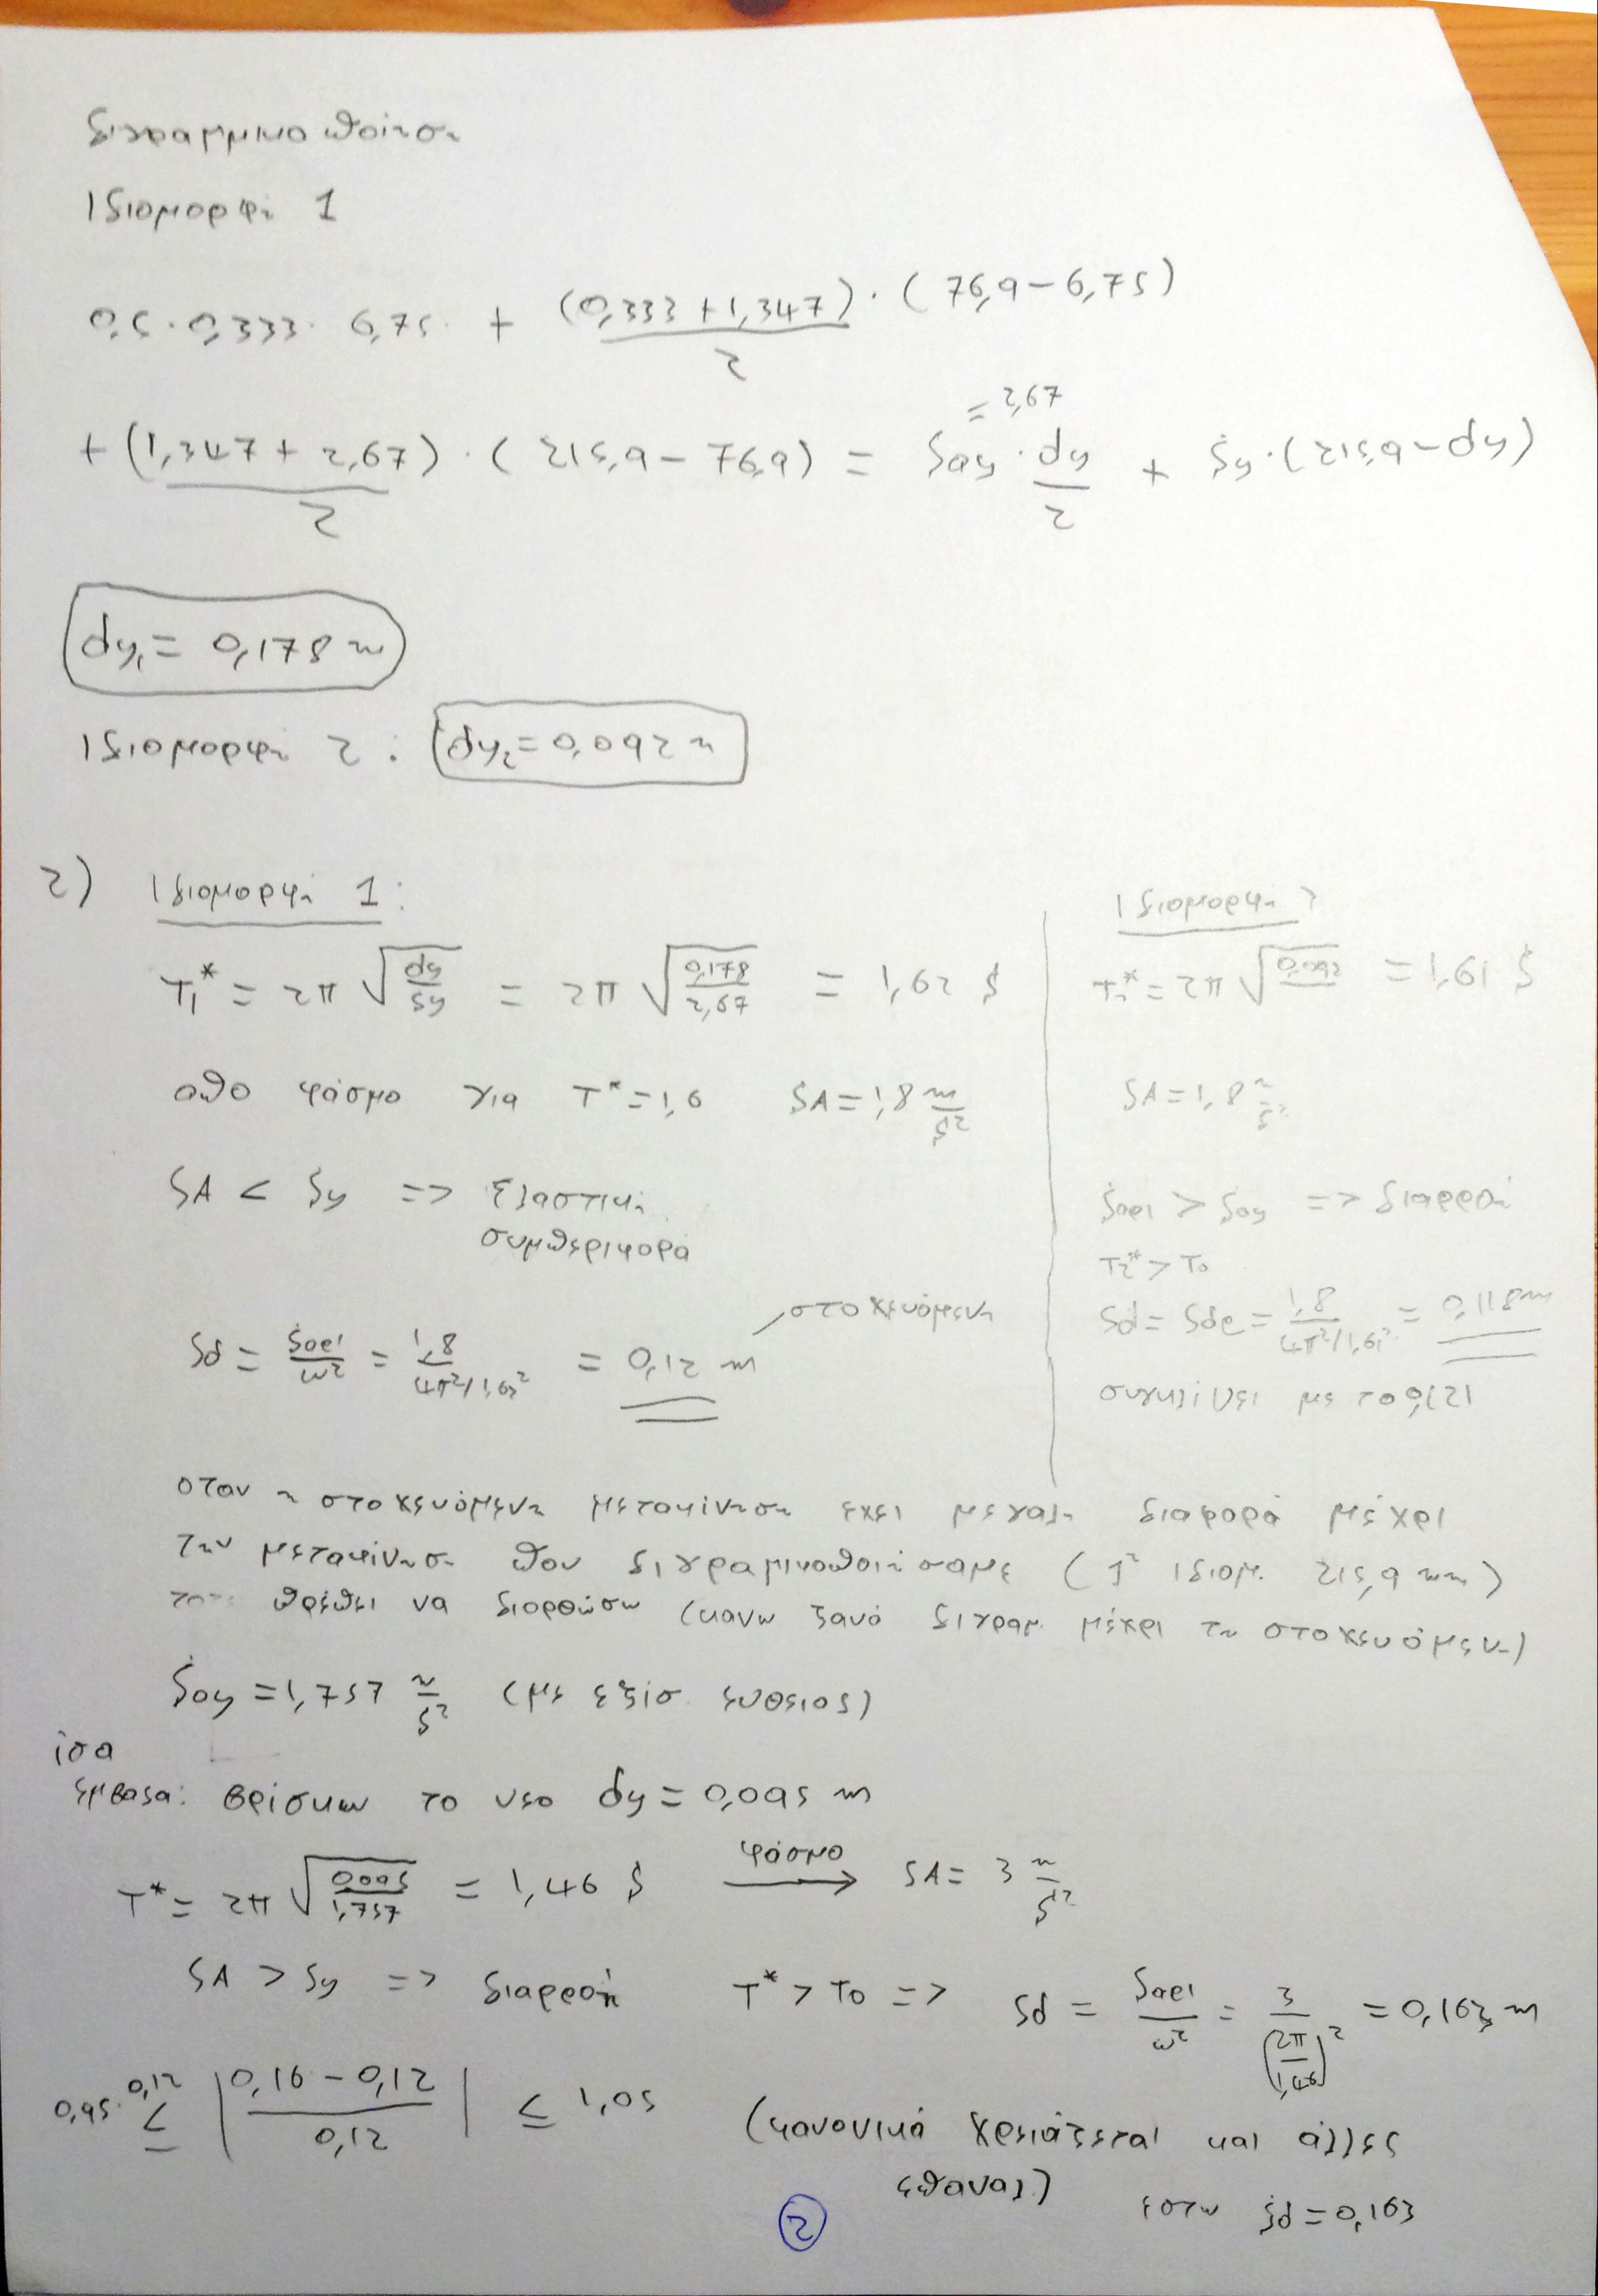 διγραμμικοποίηση
Ιδιομορφή 1
0,5 · 0,333 · 6,75 + (0,333 + 1,347)/2 · (76,9 - 6,75)
+ (1,347 + 2,67)/2 · (215,9 - 76,9) = Say · dy/2 + Sy · (215,9 - dy)
= 2,67
dy1 = 0,178 m
Ιδιομορφή 2 : dy2 = 0,092 m
2) Ιδιομορφή 1:
T1* = 2π √(dy/Sy) = 2π √(0,178/2,67) = 1,62 s
από φάσμα για T* = 1,6 SA = 1,8 m/s²
SA < Sy => ελαστική
συμπεριφορά
Sd = Sael/ω² = 1,8/(4π²/1,62²) = 0,12 m
στοχευόμενη
Ιδιομορφή 2
T2* = 2π √0,092 = 1,61 s
SA = 1,8 m/s²
Sael > Say => διαρροή
T2* > To
Sd = Sde = 1,8/(4π²/1,61²) = 0,118 m
συγκλίνει με το 0,121
οταν η στοχευόμενη μετακίνηση εχει μεγαλη διαφορά μέχρι
την μετακίνηση που διγραμικοποιήσαμε (1η ιδιομ. 215,9 mm)
τοτε πρέπει να διορθώσω (κανω ξανά διγραμ. μέχρι τη στοχευόμενη)
Say = 1,757 m/s² (με εξίσ. ευθειας)
ίσα
εμβαδα: βρίσκω το νεο dy = 0,095 m
T* = 2π √(0,095/1,757) = 1,46 s φάσμα → SA = 3 m/s²
SA > Sy => διαρροή T* > To => Sd = Sael/ω² = 3/(2π/1,46)² = 0,163 m
0,95 · 0,12 ≤ |(0,16 - 0,12)/0,12| ≤ 1,05
(κανονικά χρειάζεται και άλλες
επαναλ)
εστω Sd = 0,163
2